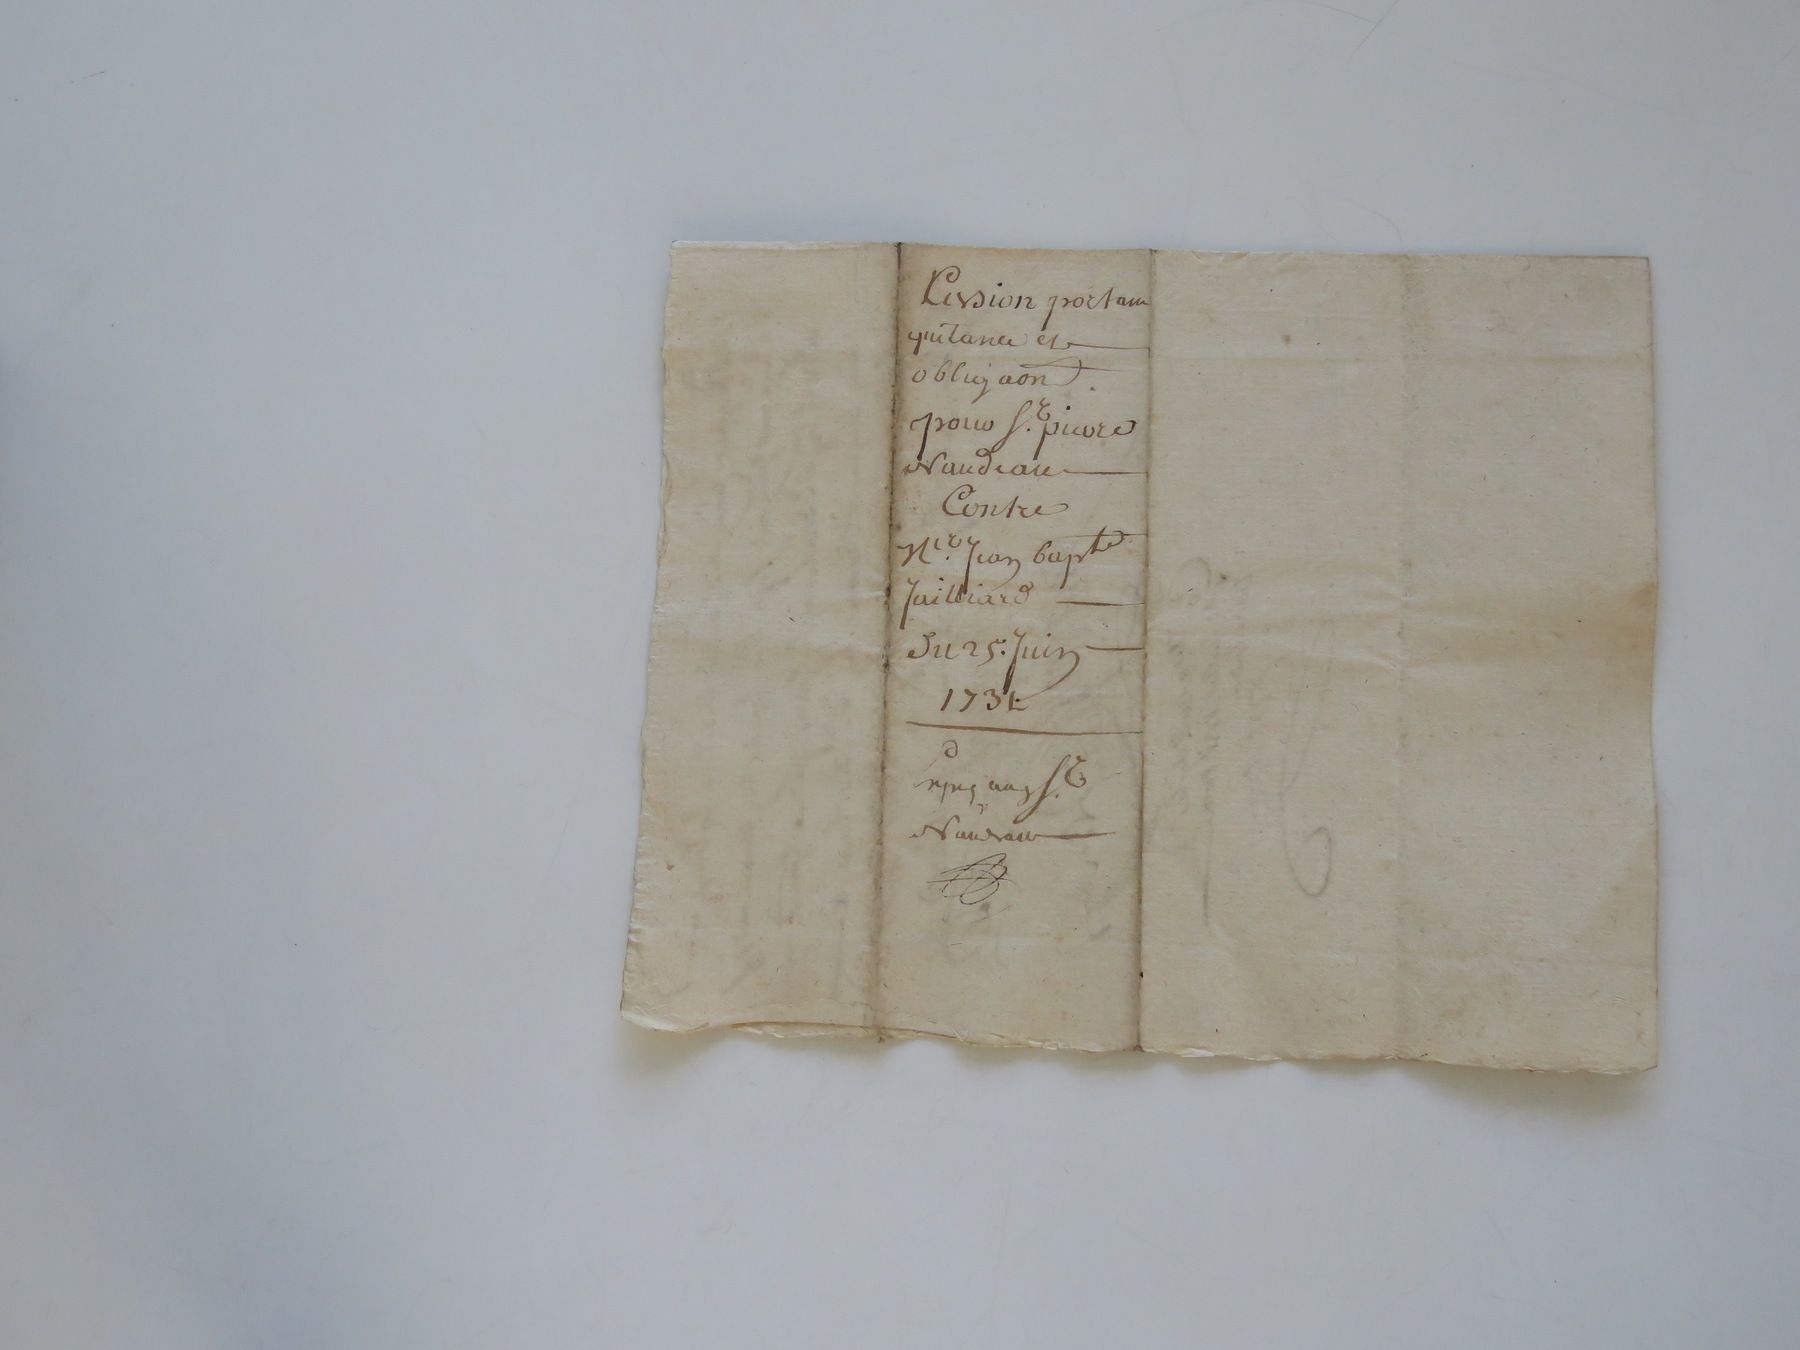 Cession portant
quitance et
obligaon.
pour Sr. pierre
Naudeau
Contre
Mre. Jean bapte
Jailliard
Du 25. Juin
1731
Sr
Naudeau